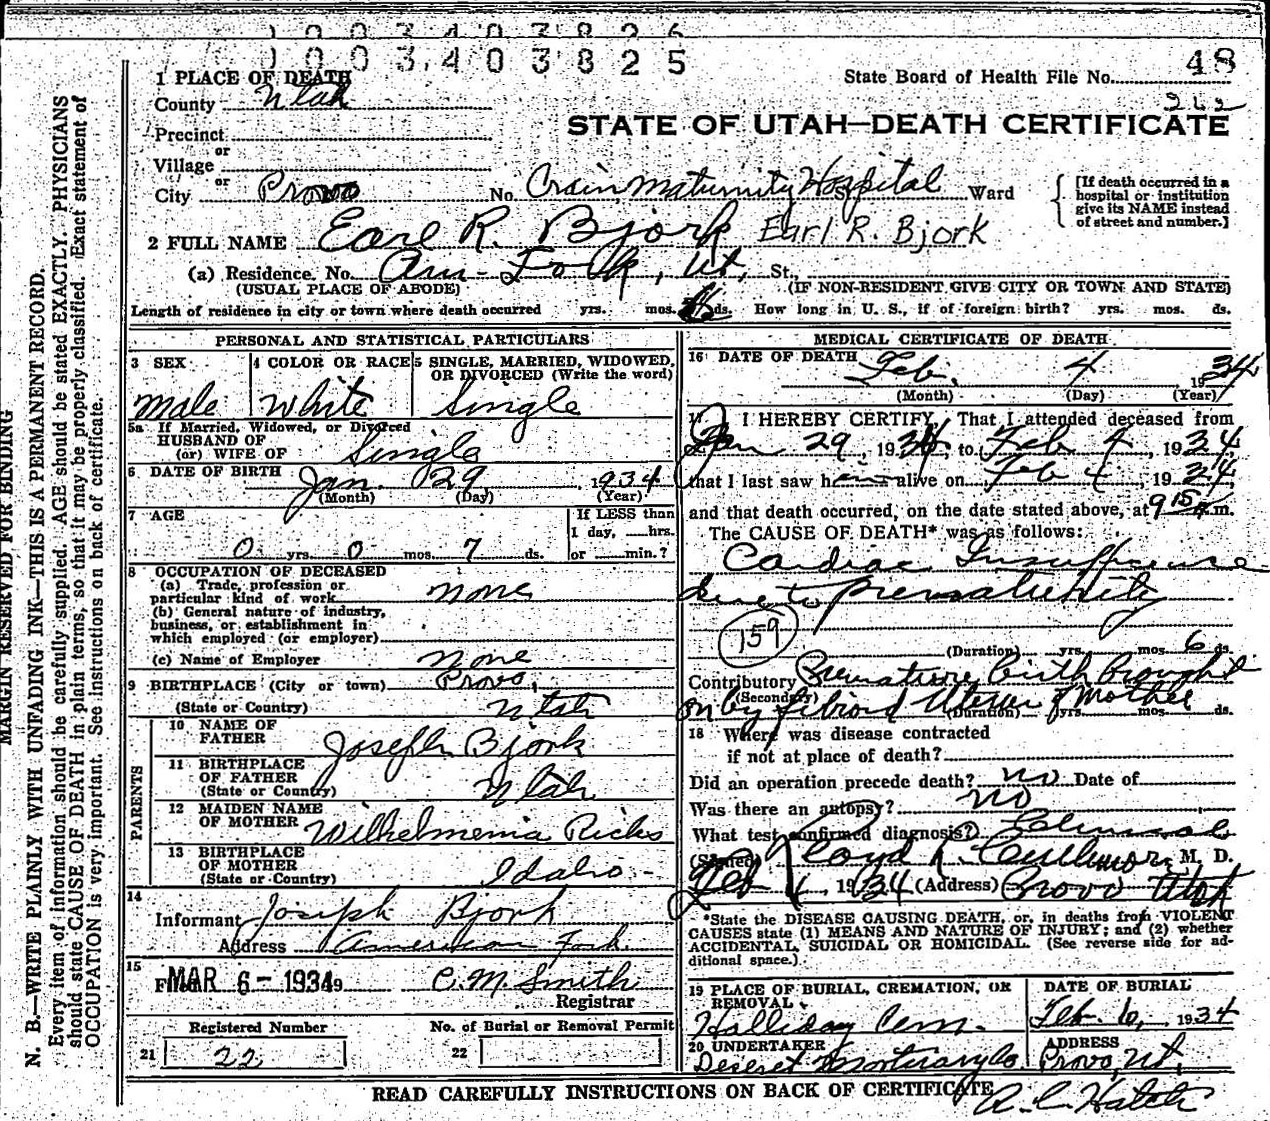 1003403826
1003403825
48
State Board of Health File No.
262
STATE OF UTAH—DEATH CERTIFICATE
1 PLACE OF DEATH
County Utah
Precinct
or
Village
or
City Provo No. Crain Maternity Hospital Ward
[If death occurred in a hospital or institution give its NAME instead of street and number.]
2 FULL NAME Earl R. Bjork Earl R. Bjork
(a) Residence. No. Am-Fork, Ut, St.,
(USUAL PLACE OF ABODE) (IF NON-RESIDENT GIVE CITY OR TOWN AND STATE)
Length of residence in city or town where death occurred yrs. mos. ds. How long in U. S., if of foreign birth? yrs. mos. ds.
PERSONAL AND STATISTICAL PARTICULARS
3 SEX 4 COLOR OR RACE 5 SINGLE, MARRIED, WIDOWED, OR DIVORCED (Write the word)
Male White Single
5a If Married, Widowed, or Divorced
HUSBAND OF
(or) WIFE OF Single
6 DATE OF BIRTH Jan. 29, 1934
(Month) (Day) (Year)
7 AGE If LESS than
1 day, hrs.
0 yrs. 0 mos. 7 ds. or min.?
8 OCCUPATION OF DECEASED
(a) Trade, profession or
particular kind of work none
(b) General nature of industry,
business, or establishment in
which employed (or employer)
(c) Name of Employer none
9 BIRTHPLACE (City or town) Provo,
(State or Country) Utah
PARENTS
10 NAME OF
FATHER Joseph Bjork
11 BIRTHPLACE
OF FATHER
(State or Country) Utah
12 MAIDEN NAME
OF MOTHER Wilhelmenia Ricks
13 BIRTHPLACE
OF MOTHER
(State or Country) Idaho
14
Informant Joseph Bjork
Address American Fork
15
F MAR 6 - 1934 9 C. M. Smith
Registrar
Registered Number No. of Burial or Removal Permit
21 22 22
MEDICAL CERTIFICATE OF DEATH
16 DATE OF DEATH Feb. 4 1934
(Month) (Day) (Year)
17 I HEREBY CERTIFY, That I attended deceased from
Jan 29, 1934, to Feb 4, 1934,
that I last saw him alive on Feb 4, 1934,
and that death occurred, on the date stated above, at 9 15 m.
The CAUSE OF DEATH* was as follows:
Cardiac Insufficience
due to prematurity
159
(Duration) yrs. mos. 6 ds.
Contributory Premature birth brought
(Secondary)
on by fibroid Uterus of Mother
(Duration) yrs. mos. ds.
18 Where was disease contracted
if not at place of death?
Did an operation precede death? no Date of
Was there an autopsy? no
What test confirmed diagnosis?
(Signed) Lloyd L. Cullimore, M. D.
Feb 4, 1934 (Address) Provo Utah
*State the DISEASE CAUSING DEATH, or, in deaths from VIOLENT
CAUSES state (1) MEANS AND NATURE OF INJURY; and (2) whether
ACCIDENTAL, SUICIDAL OR HOMICIDAL. (See reverse side for ad-
ditional space.)
19 PLACE OF BURIAL, CREMATION, OR REMOVAL DATE OF BURIAL
Halliday Cem. Feb. 6, 1934
20 UNDERTAKER ADDRESS
Deseret Mortuary Co Provo, Ut,
READ CAREFULLY INSTRUCTIONS ON BACK OF CERTIFICATE
R. C. Hatch
MARGIN RESERVED FOR BINDING
N. B.—WRITE PLAINLY WITH UNFADING INK—THIS IS A PERMANENT RECORD.
Every item of information should be carefully supplied. AGE should be stated EXACTLY. PHYSICIANS
should state CAUSE OF DEATH in plain terms, so that it may be properly classified. Exact statement of
OCCUPATION is very important. See instructions on back of certificate.